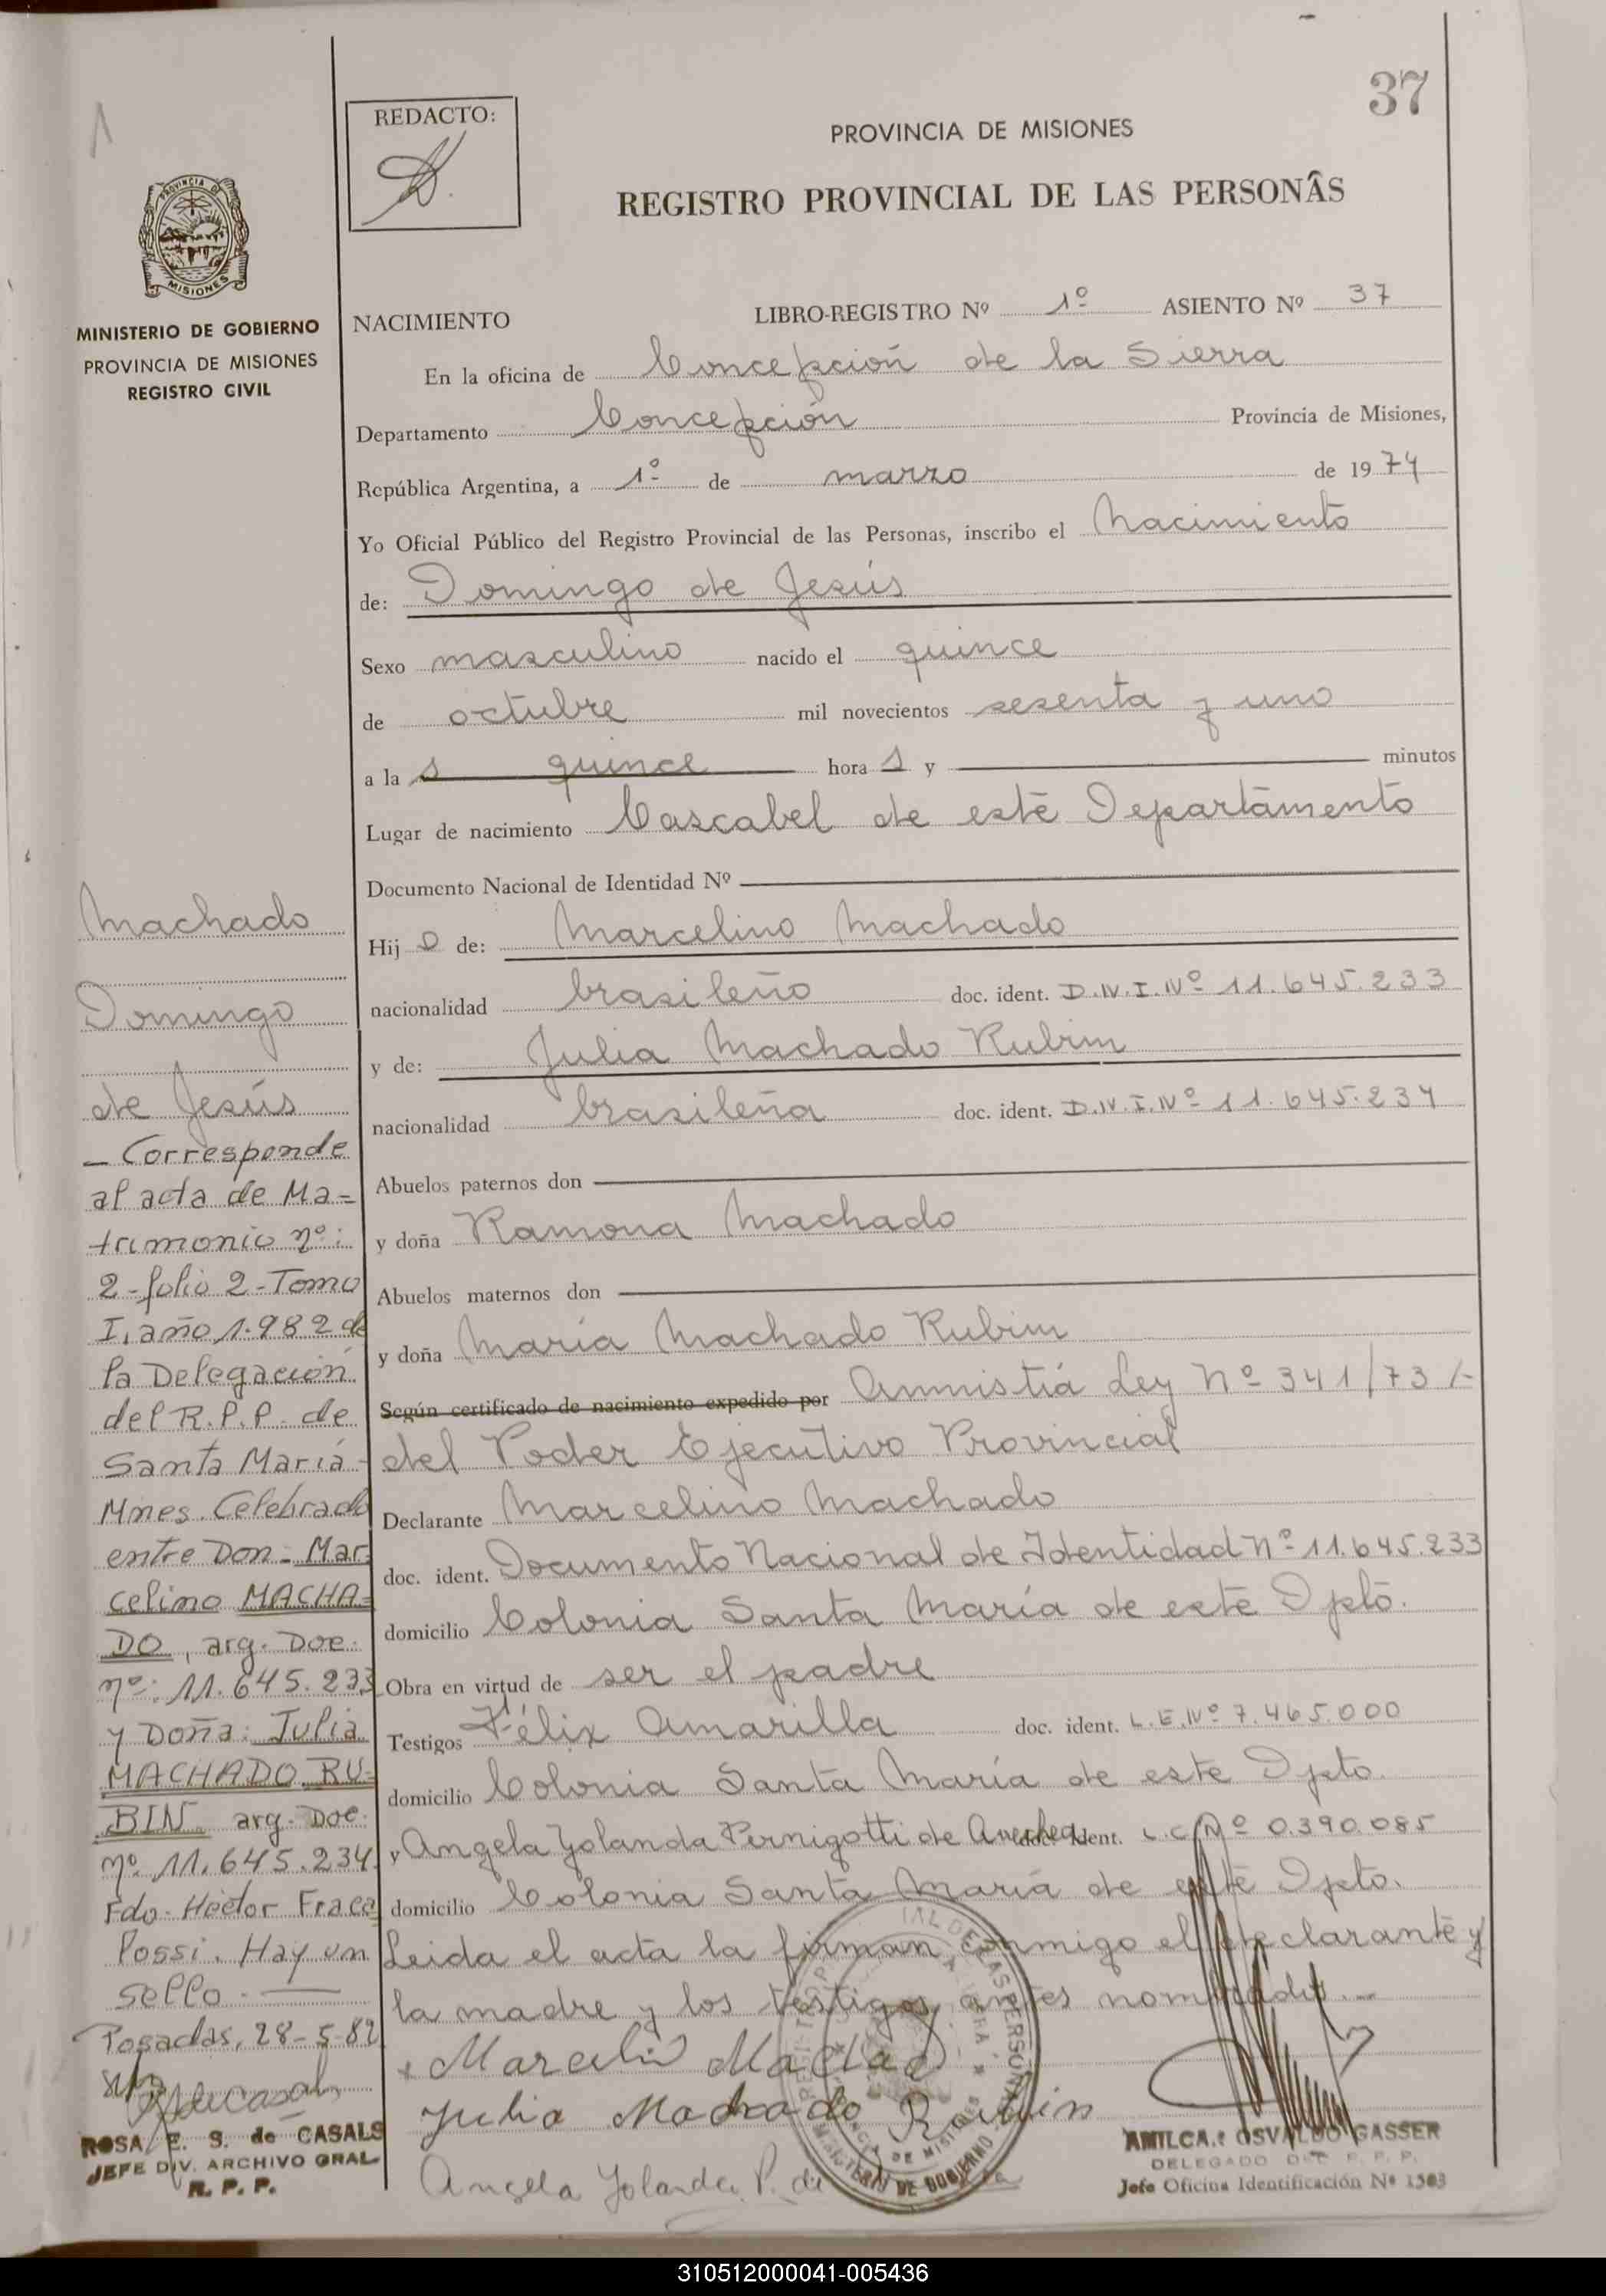 37
1
REDACTO:
PROVINCIA DE MISIONES
REGISTRO PROVINCIAL DE LAS PERSONAS
PROVINCIA DE
MISIONES
MINISTERIO DE GOBIERNO
PROVINCIA DE MISIONES
REGISTRO CIVIL
NACIMIENTO LIBRO-REGISTRO Nº 1º ASIENTO Nº 37
En la oficina de Concepción de la Sierra
Departamento Concepción Provincia de Misiones,
República Argentina, a 1º de marzo de 1974
Yo Oficial Público del Registro Provincial de las Personas, inscribo el Nacimiento
de: Domingo de Jesús
Sexo masculino nacido el quince
de octubre mil novecientos sesenta y uno
a la s quince hora s y minutos
Lugar de nacimiento Cascabel de este Departamento
Documento Nacional de Identidad Nº
Hij o de: Marcelino Machado
nacionalidad brasileño doc. ident. D.N.I.Nº 11.645.233
y de: Julia Machado Rubim
nacionalidad brasileña doc. ident. D.N.I.Nº 11.645.234
Abuelos paternos don
y doña Ramona Machado
Abuelos maternos don
y doña María Machado Rubim
Según certificado de nacimiento expedido por Amnistía Ley Nº 341/73 /-
del Poder Ejecutivo Provincial
Declarante Marcelino Machado
doc. ident. Documento Nacional de Identidad Nº 11.645.233
domicilio Colonia Santa María de este Dpto.
Obra en virtud de ser el padre
Testigos Félix Amarilla doc. ident. L.E.Nº 7.465.000
domicilio Colonia Santa María de este Dpto.
y Angela Yolanda Pernigotti de doc. ident. L.C.Nº 0.390.085
domicilio Colonia Santa María de este Dpto.
Leida el acta la firman conmigo el declarante y
la madre y los testigos antes nombrados...
Marcelino Machado
Julia Machado Rubin
Angela Yolanda P. de
AMILCAR OSVALDO GASSER
DELEGADO DEL R. P. P.
Jefe Oficina Identificación Nº 1503
Machado
Domingo
de Jesús
- Corresponde
al acta de Ma=
trimonio nº:
2-folio 2-Tomo
I, año 1.982 de
la Delegación
del R.P.P. de
Santa María-
Mnes. Celebrado
entre Don: Mar
celino MACHA=
DO, arg. Doc.
nº: 11.645.233
y Doña: Julia
MACHADO RU=
BIN arg. Doc.
nº 11.645.234.
Fdo. Héctor Fraca
Possi. Hay un
sello.
Posadas, 28-5-82
ROSA E. S. de CASALS
JEFE DIV. ARCHIVO GRAL.
R. P. P.
310512000041-005436